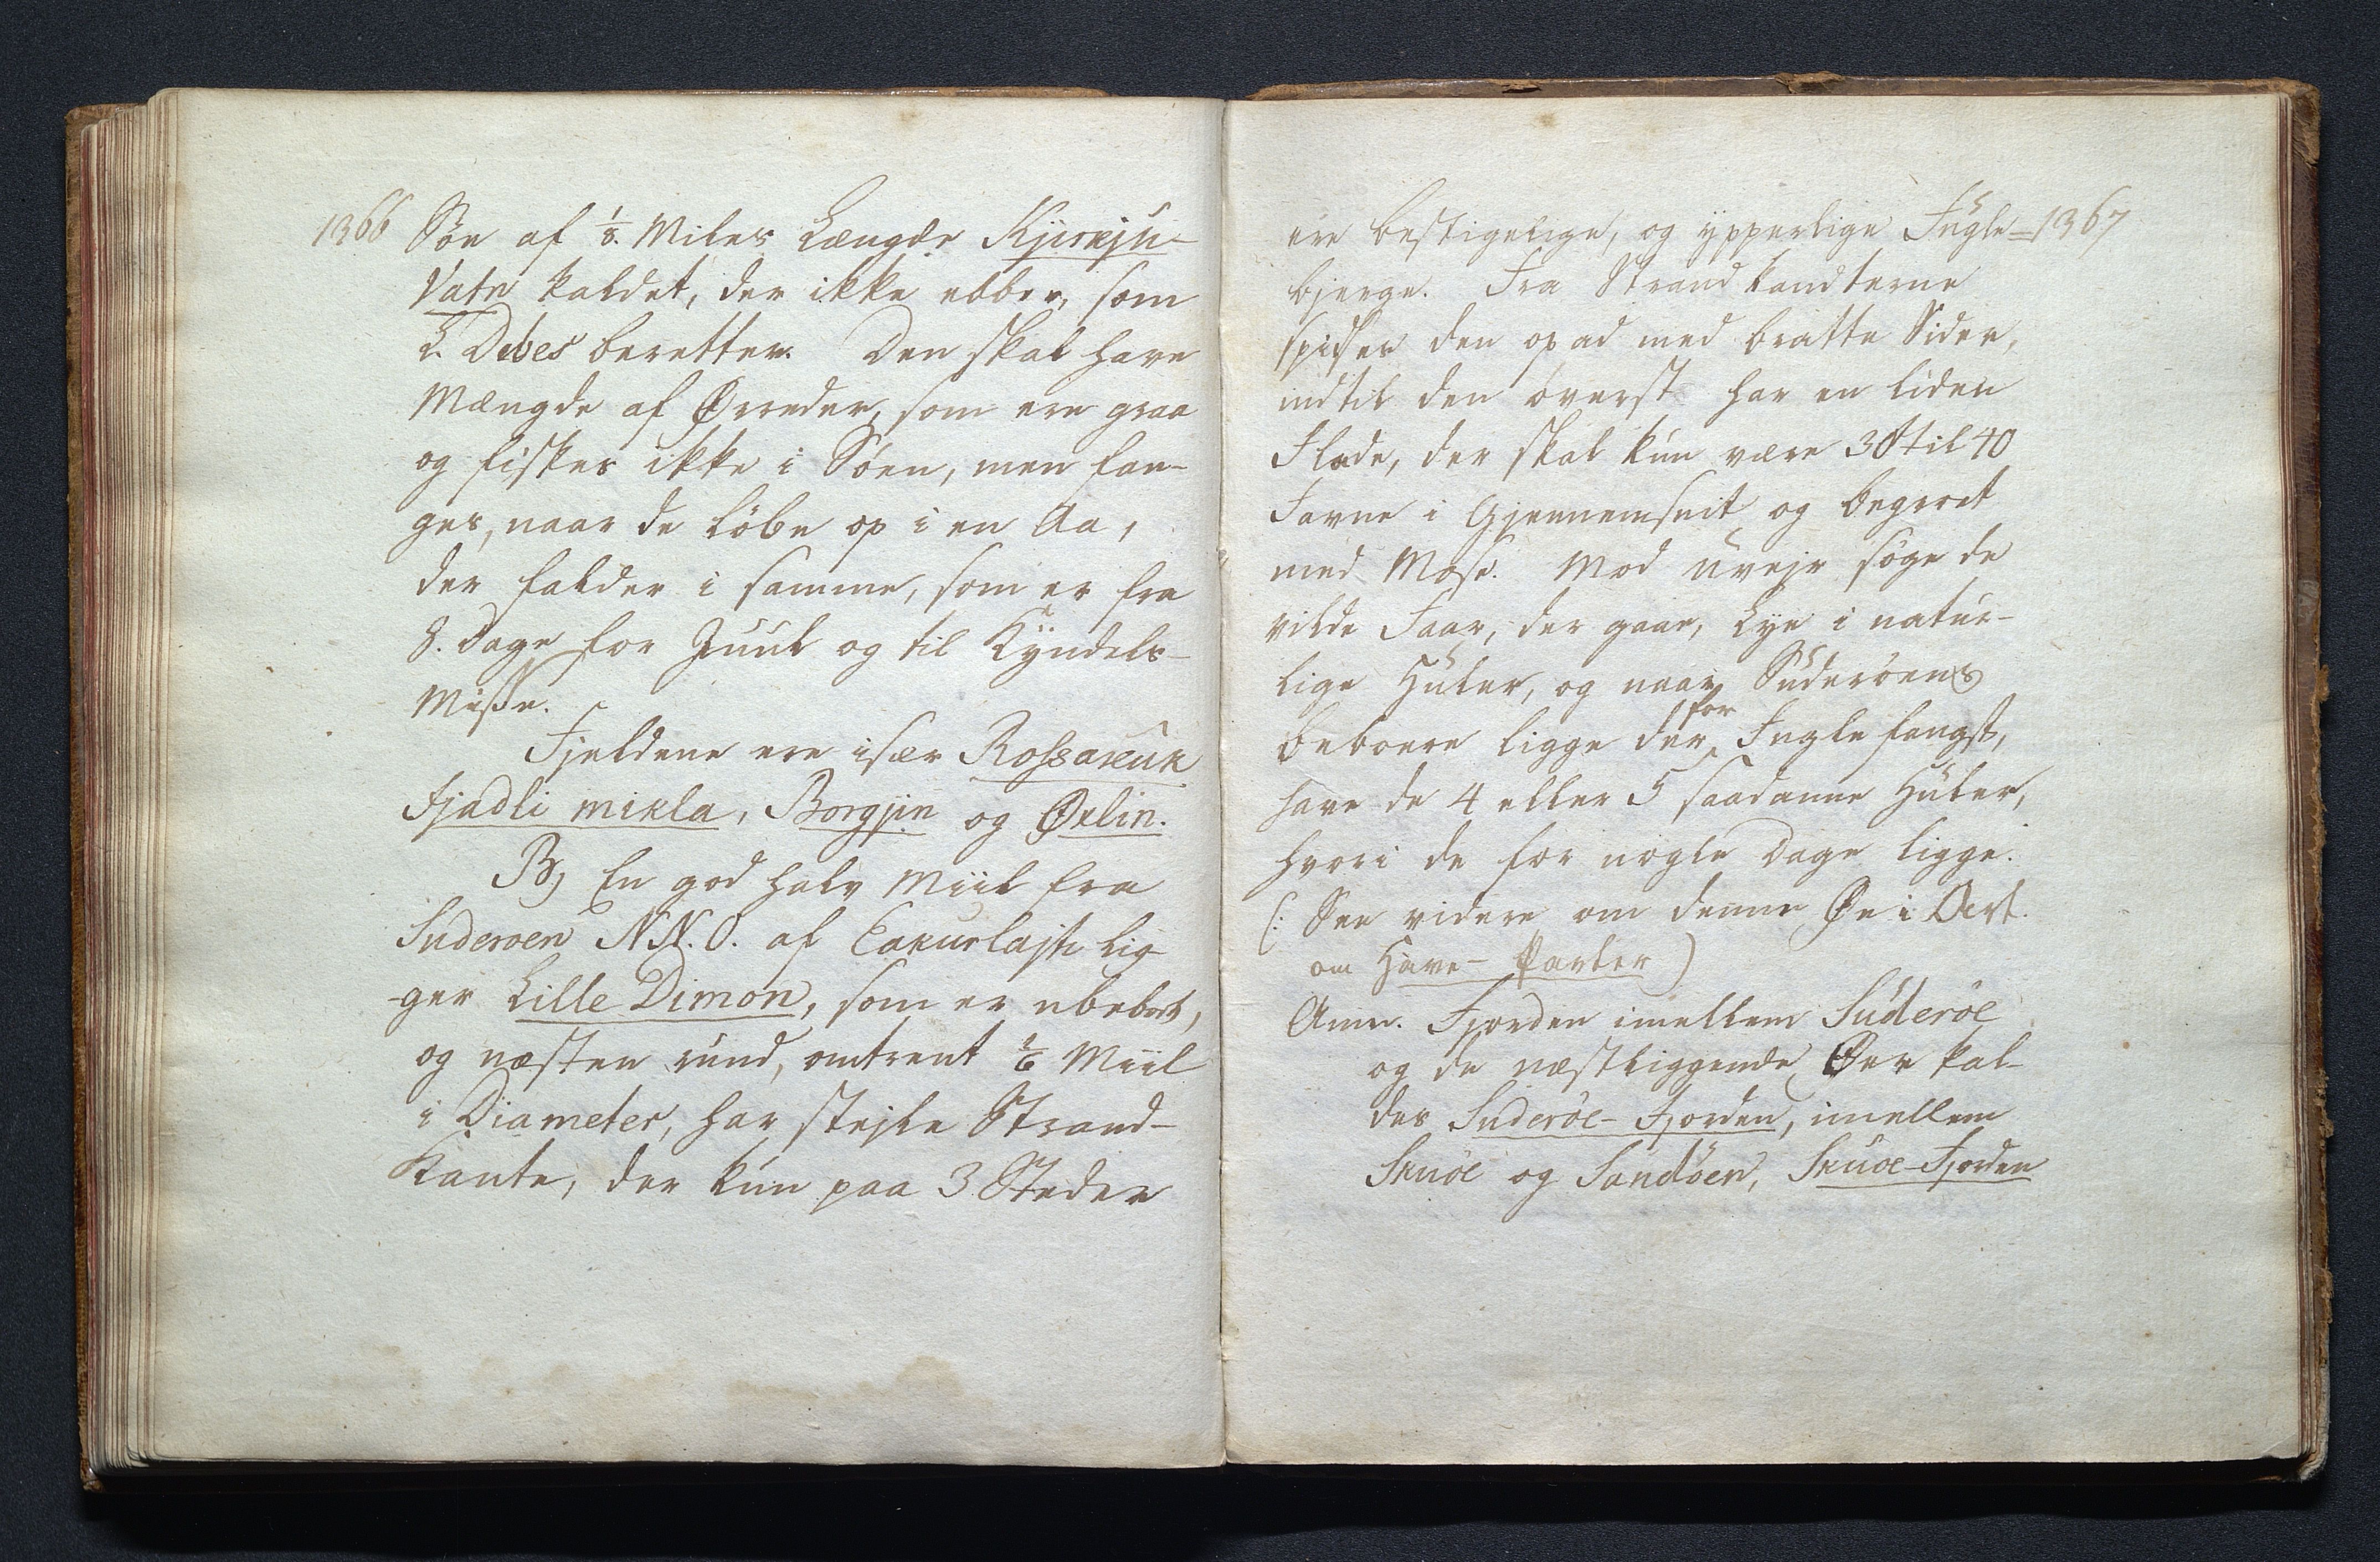 1366
Söe af 1/8. Miles Længde Kjirkju-
Vatn kaldet, der ikke ebber, som
L. Debes beretter. Den skal have
Mængde af Ørreder, som ere graa
og fiskes ikke i Söen, men fan-
ges, naar de löbe op i en Aa,
der falder i samme, som er fra
8. Dage for Juul og til Kyndels-
Misse.
Fjeldene ere især Rossakluk
Fjadli mikla, Borgjin og Øxlin.
B, En god halv Miil fra
Suderoen N.N.O. af lig-
-ger Lille Dimon, som er ubeboet,
og næsten rund, omtrent 1/6 Miil
i Diameter, har stejle Strand-
Kante, der kun paa 3 Steder
1367
ere bestigelige, og ypperlige Fugle=
bjerge. Fra Strand kandterne
spidser den opad med bratte Sider,
indtil den överst har en liden
Flade, der skal kun være 30 til 40
Favne i Gjennemsnit og begroet
med Mose. Mod Uvejr söge de
vilde Faar, der gaae, Lye i natur-
lige Huler, og naar Suderöens
Beboere ligge der for Fugle fangst,
have de 4 eller 5 saadanne Huler,
hvori de for nogle Dage ligge.
(: See videre om denne Øe i Art.
om Have-Parter)
Anm. Fjorden imellem Suderöe
og de næstliggende Øer kal-
des Suderöe-Fjorden, imellem
Skuöe og Sandöen, Skuoe-Fjorden